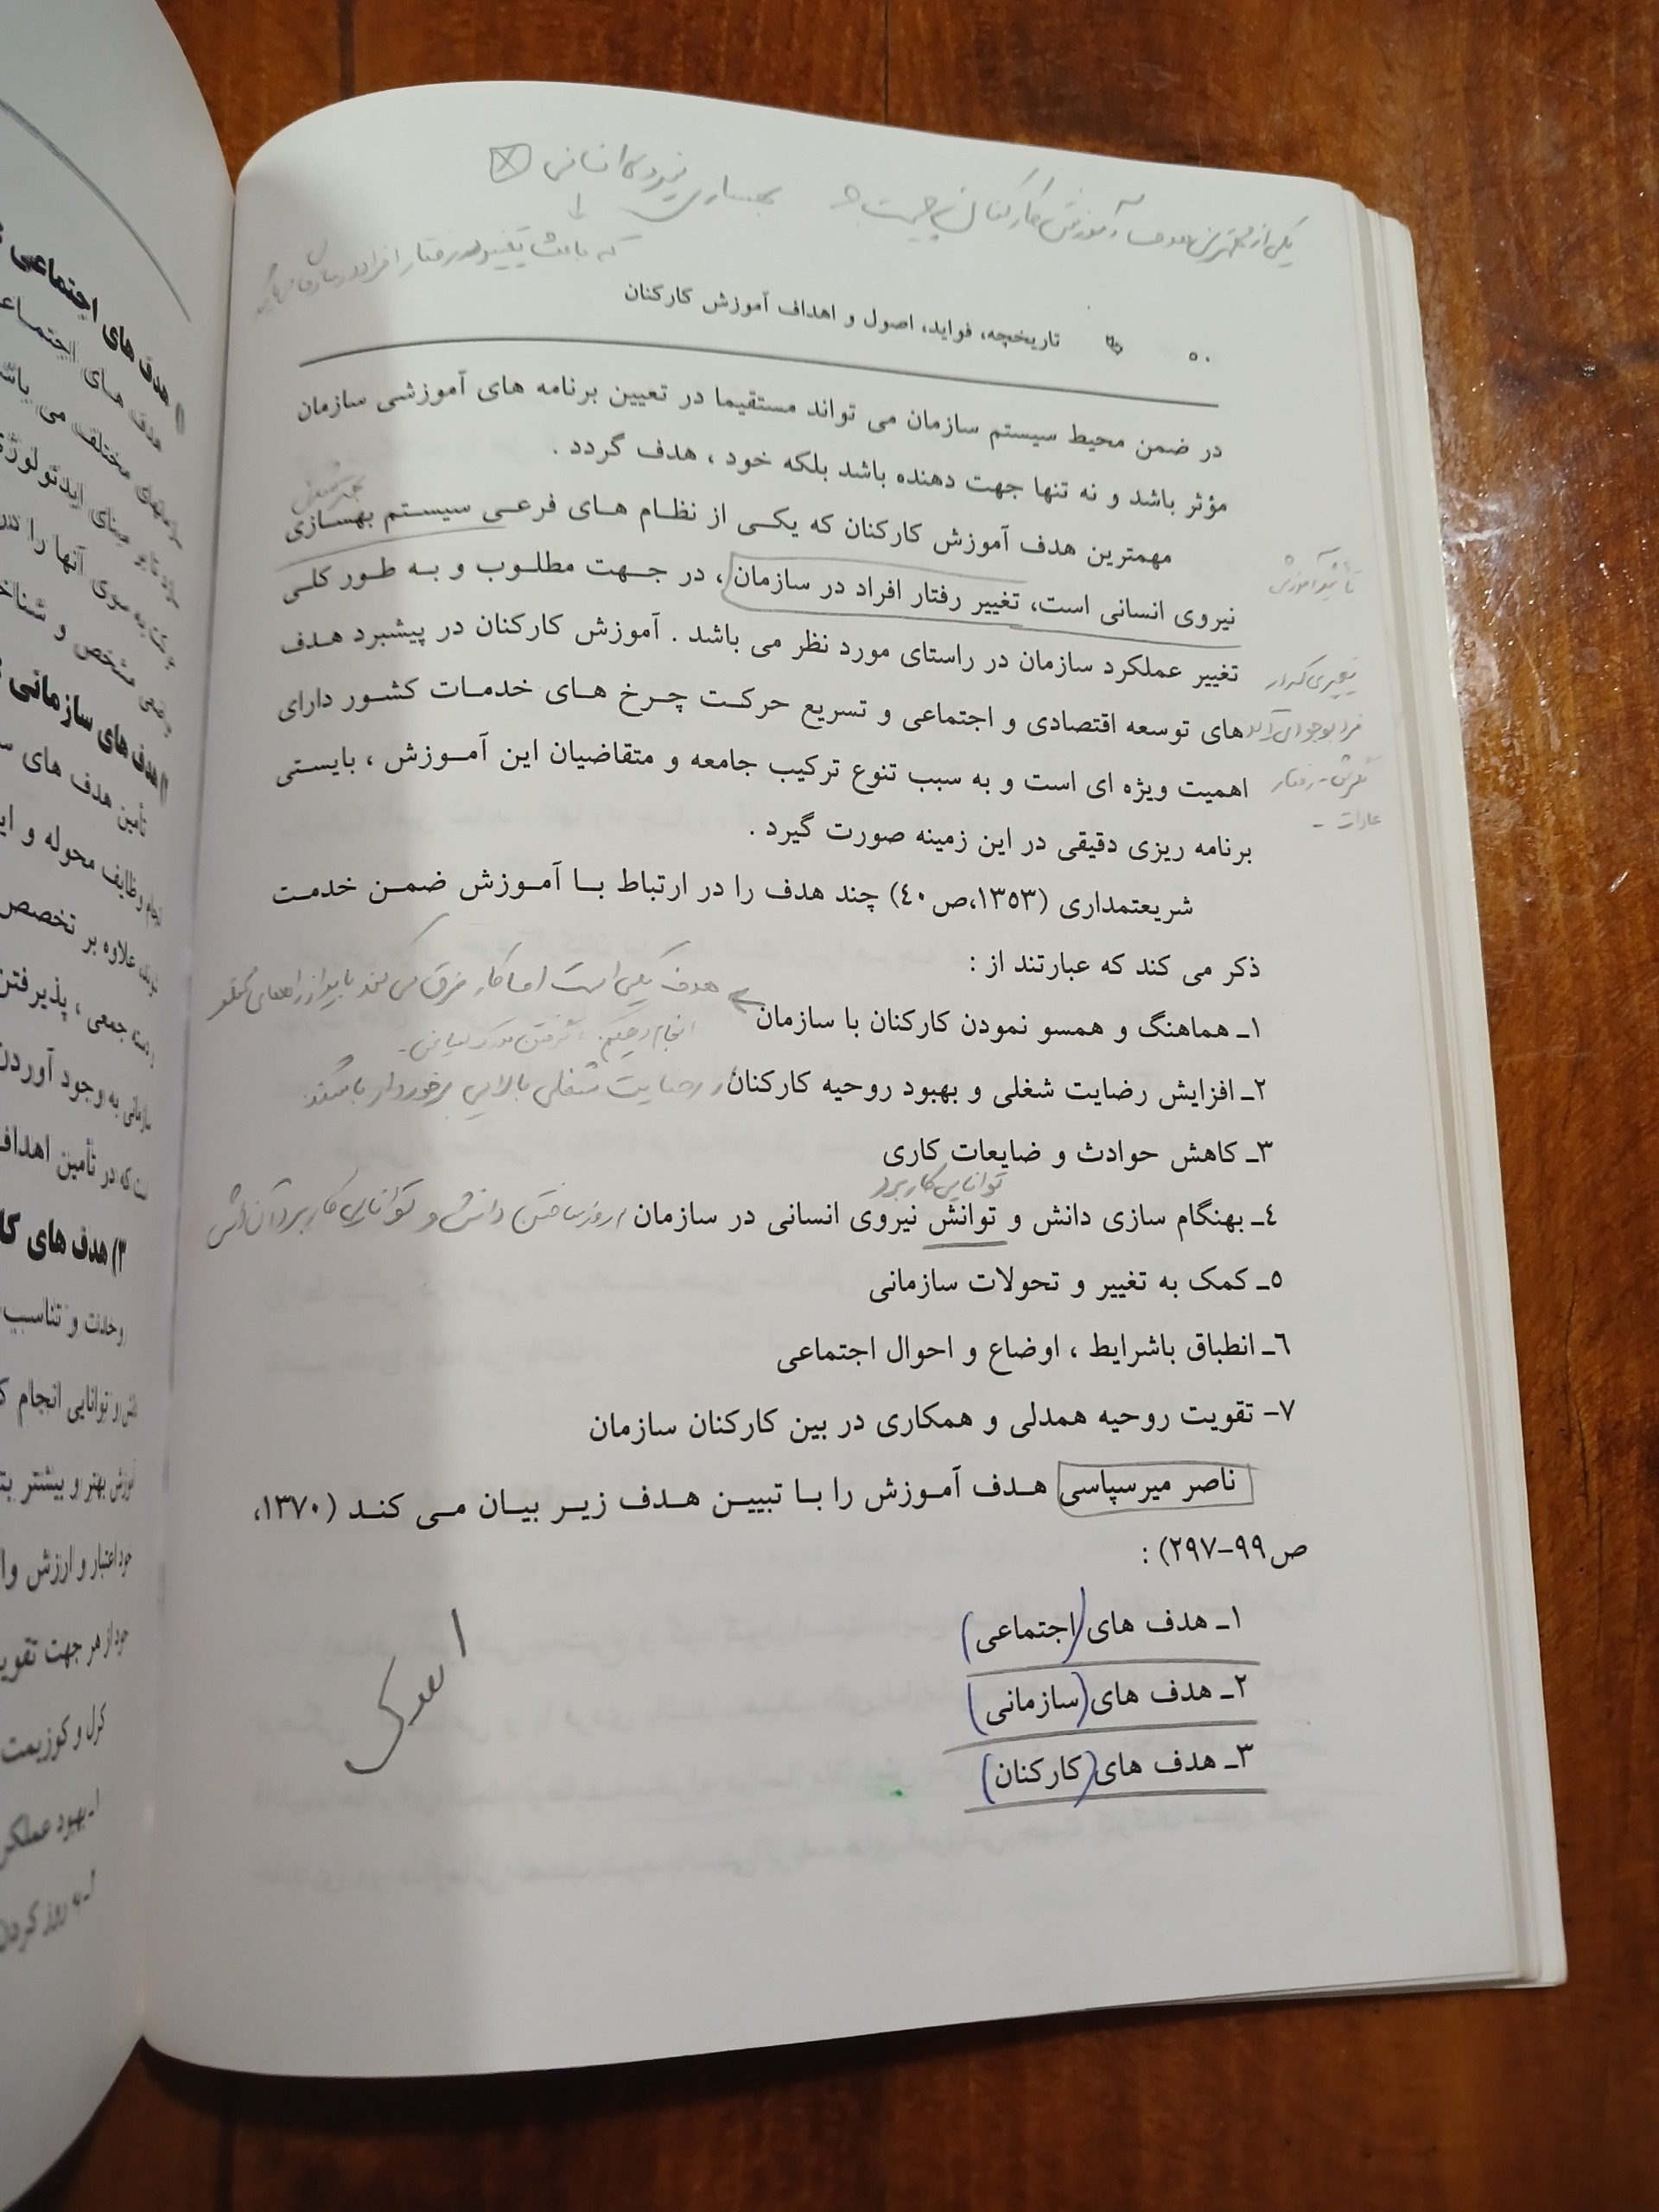 یکی از مهمترین هدف آموزش کارکنان چیست؟ بهسازی نیروی انسانی
که باعث تغییر در رفتار افراد در سازمان
۵۰ تاریخچه، فواید، اصول و اهداف آموزش کارکنان
در ضمن محیط سیستم سازمان می تواند مستقیما در تعیین برنامه های آموزشی سازمان
مؤثر باشد و نه تنها جهت دهنده باشد بلکه خود ، هدف گردد .
مهمترین هدف آموزش کارکنان که یکی از نظام های فرعی سیستم بهسازی
نیروی انسانی است، تغییر رفتار افراد در سازمان ، در جهت مطلوب و به طور کلی
تغییر عملکرد سازمان در راستای مورد نظر می باشد . آموزش کارکنان در پیشبرد هدف
های توسعه اقتصادی و اجتماعی و تسریع حرکت چرخ های خدمات کشور دارای
اهمیت ویژه ای است و به سبب تنوع ترکیب جامعه و متقاضیان این آموزش ، بایستی
برنامه ریزی دقیقی در این زمینه صورت گیرد .
تأثیر آموزش
نگرش - رفتار
عادات -
شریعتمداری (۱۳۵۳،ص۴۰) چند هدف را در ارتباط با آموزش ضمن خدمت
ذکر می کند که عبارتند از :
۱ـ هماهنگ و همسو نمودن کارکنان با سازمان
هدف یکی است اما کار فرق می کند باید از راههای
۲ـ افزایش رضایت شغلی و بهبود روحیه کارکنان از رضایت شغلی بالایی برخوردار باشند
۳ـ کاهش حوادث و ضایعات کاری
توانایی کاربرد
۴ـ بهنگام سازی دانش و توانش نیروی انسانی در سازمان روز ساختن دانش و توانایی کاربرد آن
۵ـ کمک به تغییر و تحولات سازمانی
۶ـ انطباق باشرایط ، اوضاع و احوال اجتماعی
۷- تقویت روحیه همدلی و همکاری در بین کارکنان سازمان
ناصر میرسپاسی هدف آموزش را با تبیین هدف زیر بیان می کند (۱۳۷۰،
ص۹۹-۲۹۷) :
۱ـ هدف های (اجتماعی)
۲ـ هدف های (سازمانی)
۳ـ هدف های (کارکنان)